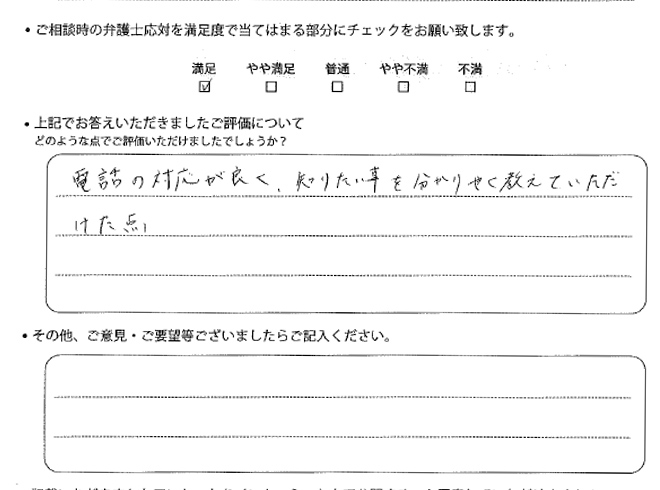 • ご相談時の弁護士応対を満足度で当てはまる部分にチェックをお願い致します。
満足 やや満足 普通 やや不満 不満
☑ □ □ □ □
• 上記でお答えいただきましたご評価について
どのような点でご評価いただけましたでしょうか？
電話の対応が良く、知りたい事を分かりやすく教えていただ
けた点。
• その他、ご意見・ご要望等ございましたらご記入ください。